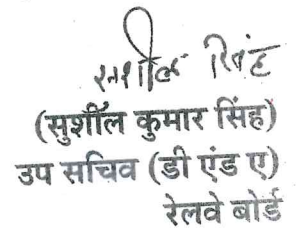 सुशील सिंह
(सुशील कुमार सिंह)
उप सचिव (डी एंड ए)
रेलवे बोर्ड